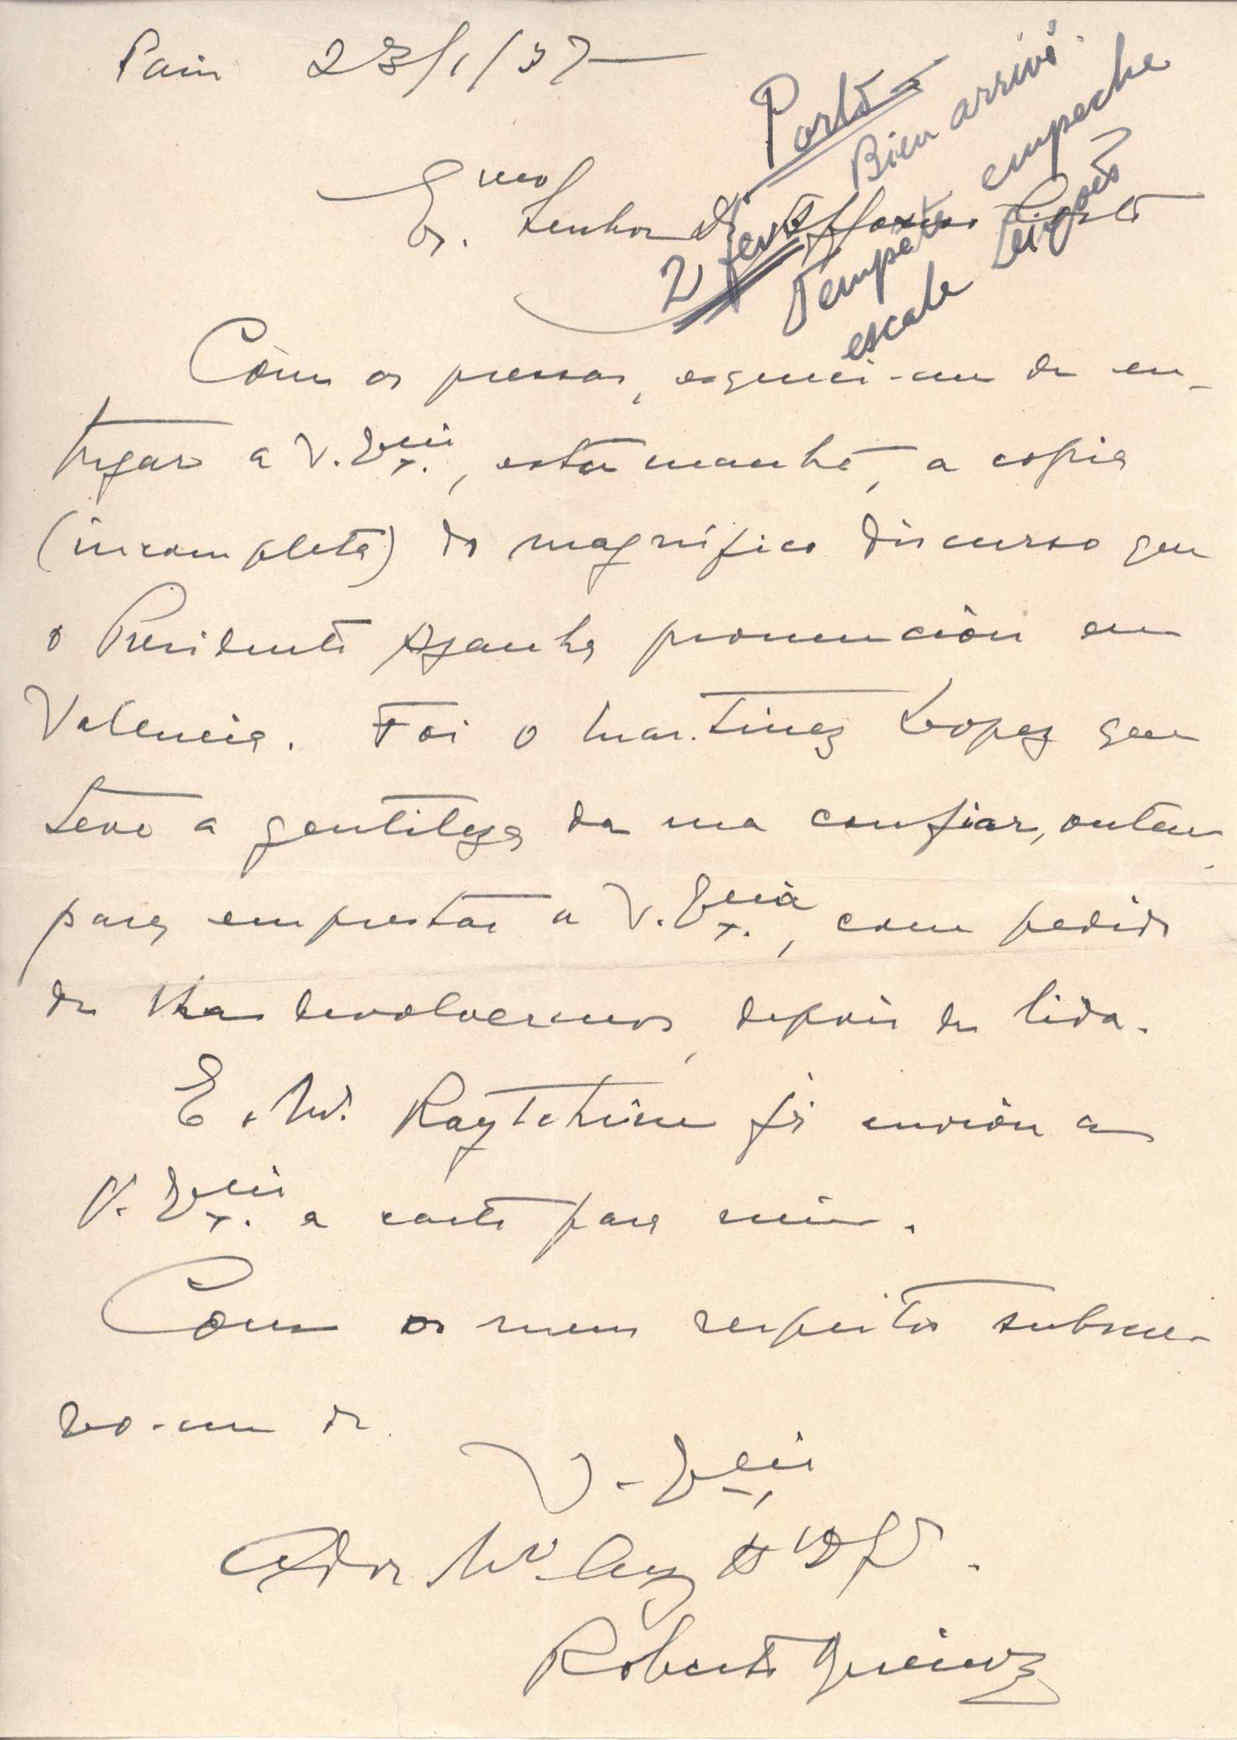 Paris 23/1/37
Exmo Senhor Dr. Affonso Costa
Porto
2 fev.
Bien arrivé
Tempête empeche
escale Leixoes
Com as pressas, esqueci-me de en-
tregar a V. Excia., esta manhã, a copia
(incompleta) do magnífico discurso que
o Presidente Azanha pronunciòu em
Valencia. Foi o Martinez Lopez que
teve a gentileza de ma confiar, ontem,
para emprestar a V. Excia., com pedido
de lha devolvermos, depois de lida.
E. M. já enviòu a
V. Excia. a carta para mim.
Com os meus respeitos subscre-
vo-me de
V. Excia
Ador. Mto.
Roberto Queiroz